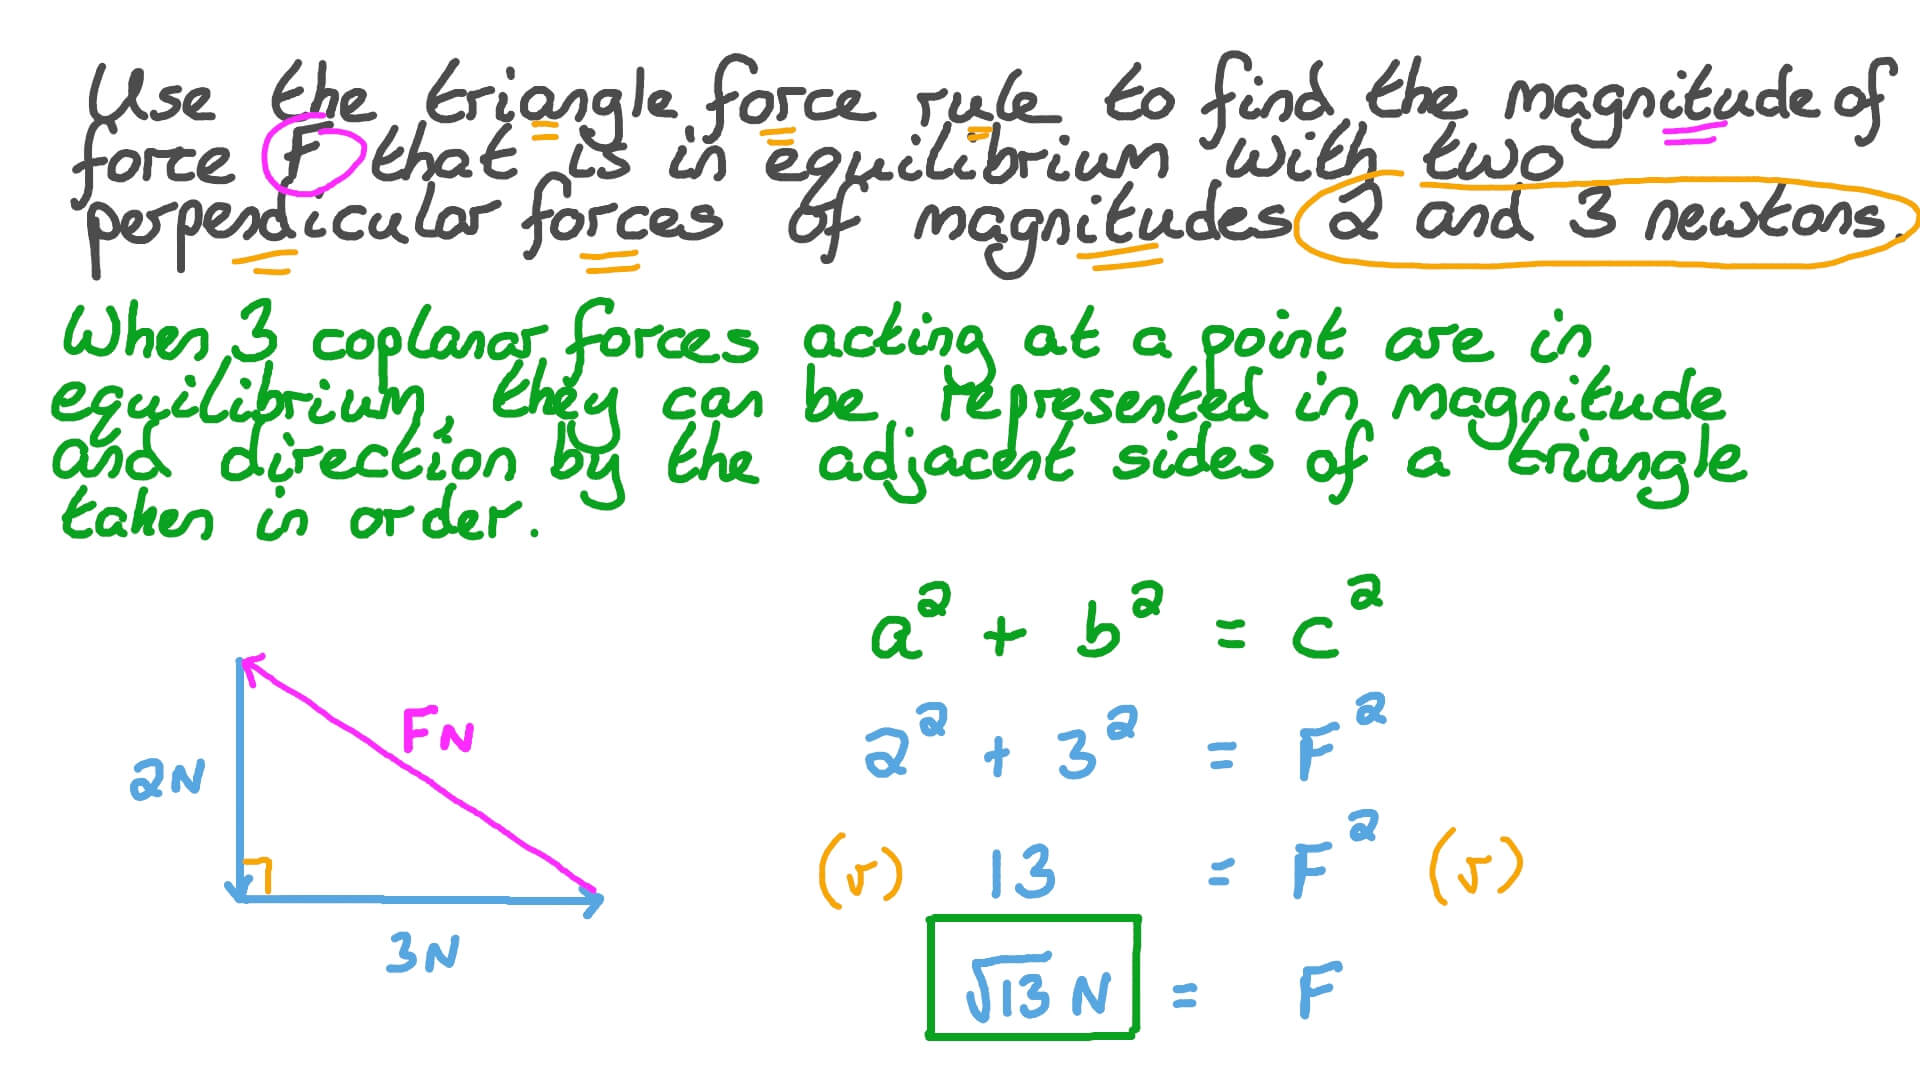 Use the triangle force rule to find the magnitude of
force F that is in equilibrium with two
perpendicular forces of magnitudes 2 and 3 newtons.
When 3 coplanar forces acting at a point are in
equilibrium, they can be represented in magnitude
and direction by the adjacent sides of a triangle
taken in order.
a² + b² = c²
2² + 3² = F²
(√) 13 = F² (√)
√13 N = F
FN
2N
3N